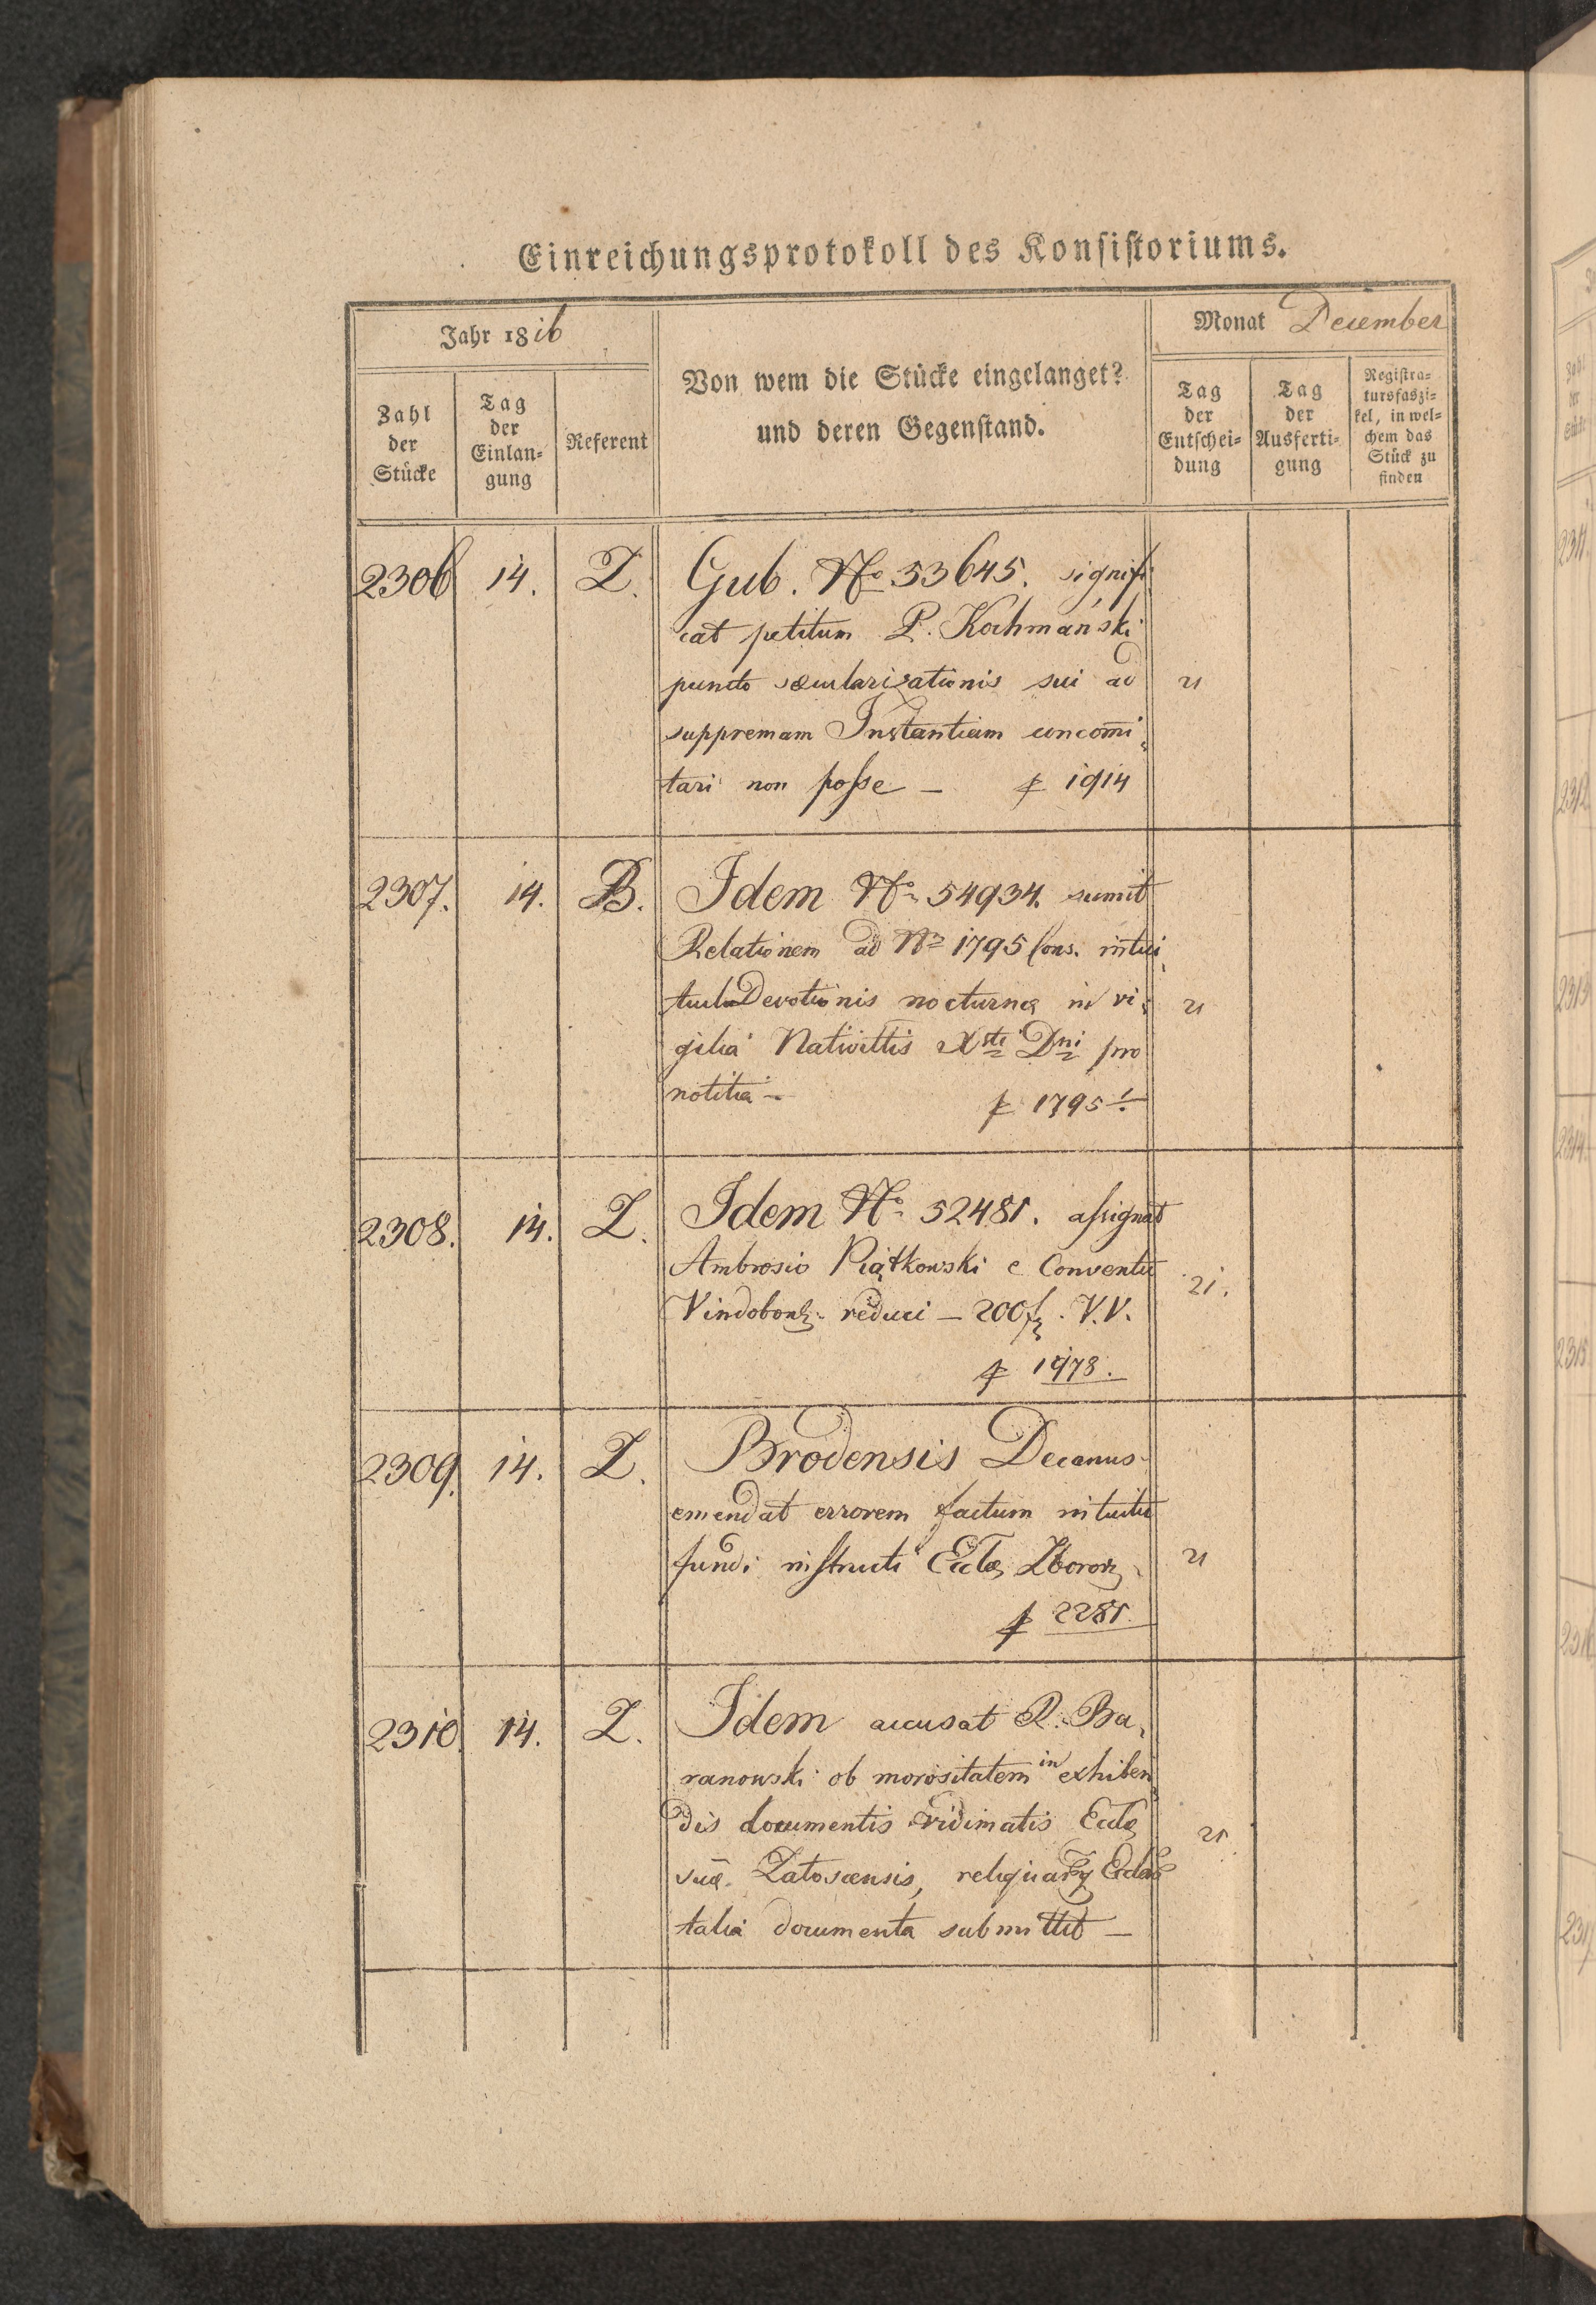 Einreichungsprotokoll des Konsistoriums.
Jahr 1816
Monat December
Zahl der Stücke
Tag der Einlan-gung
Referent
Von wem die Stücke eingelanget?
und deren Gegenstand.
Tag der Entschei-dung
Tag der Ausferti-gung
Registra-tursfaszi-kel, in wel-chem das Stück zu finden
2306 14. Z. Gub. No 53645. signifi
cat petitum P. Kochmański
puncto sæcularizationis sui ad 21
suppremam Instantiam concom̄i
tari non posse – f 1914
2307. 14. B. Idem No 54934. sumit
Relationem ad No 1795 Cons. intui
tu Devotionis nocturnæ in vi 21
gilia Nativittis Xsti Dni pro
notitia – f 1795
2308. 14. Z. Idem No 52481. assignat
Ambrosio Piątkowski e Conventu 21.
Vindobon. reduci – 200 f. V.V.
f 1978.
2309. 14. Z. Brodensis Decanus
emendat errorem factum intuitu
fundi instructi Eccles Zborov. 21
f 2281
2310 14. Z. Idem accusat R. Ba
ranowski ob morositatem in exhiben
dis documentis vidimatis Eccle 21
suæ Zatoscensis, reliquar
talia documenta submittit –